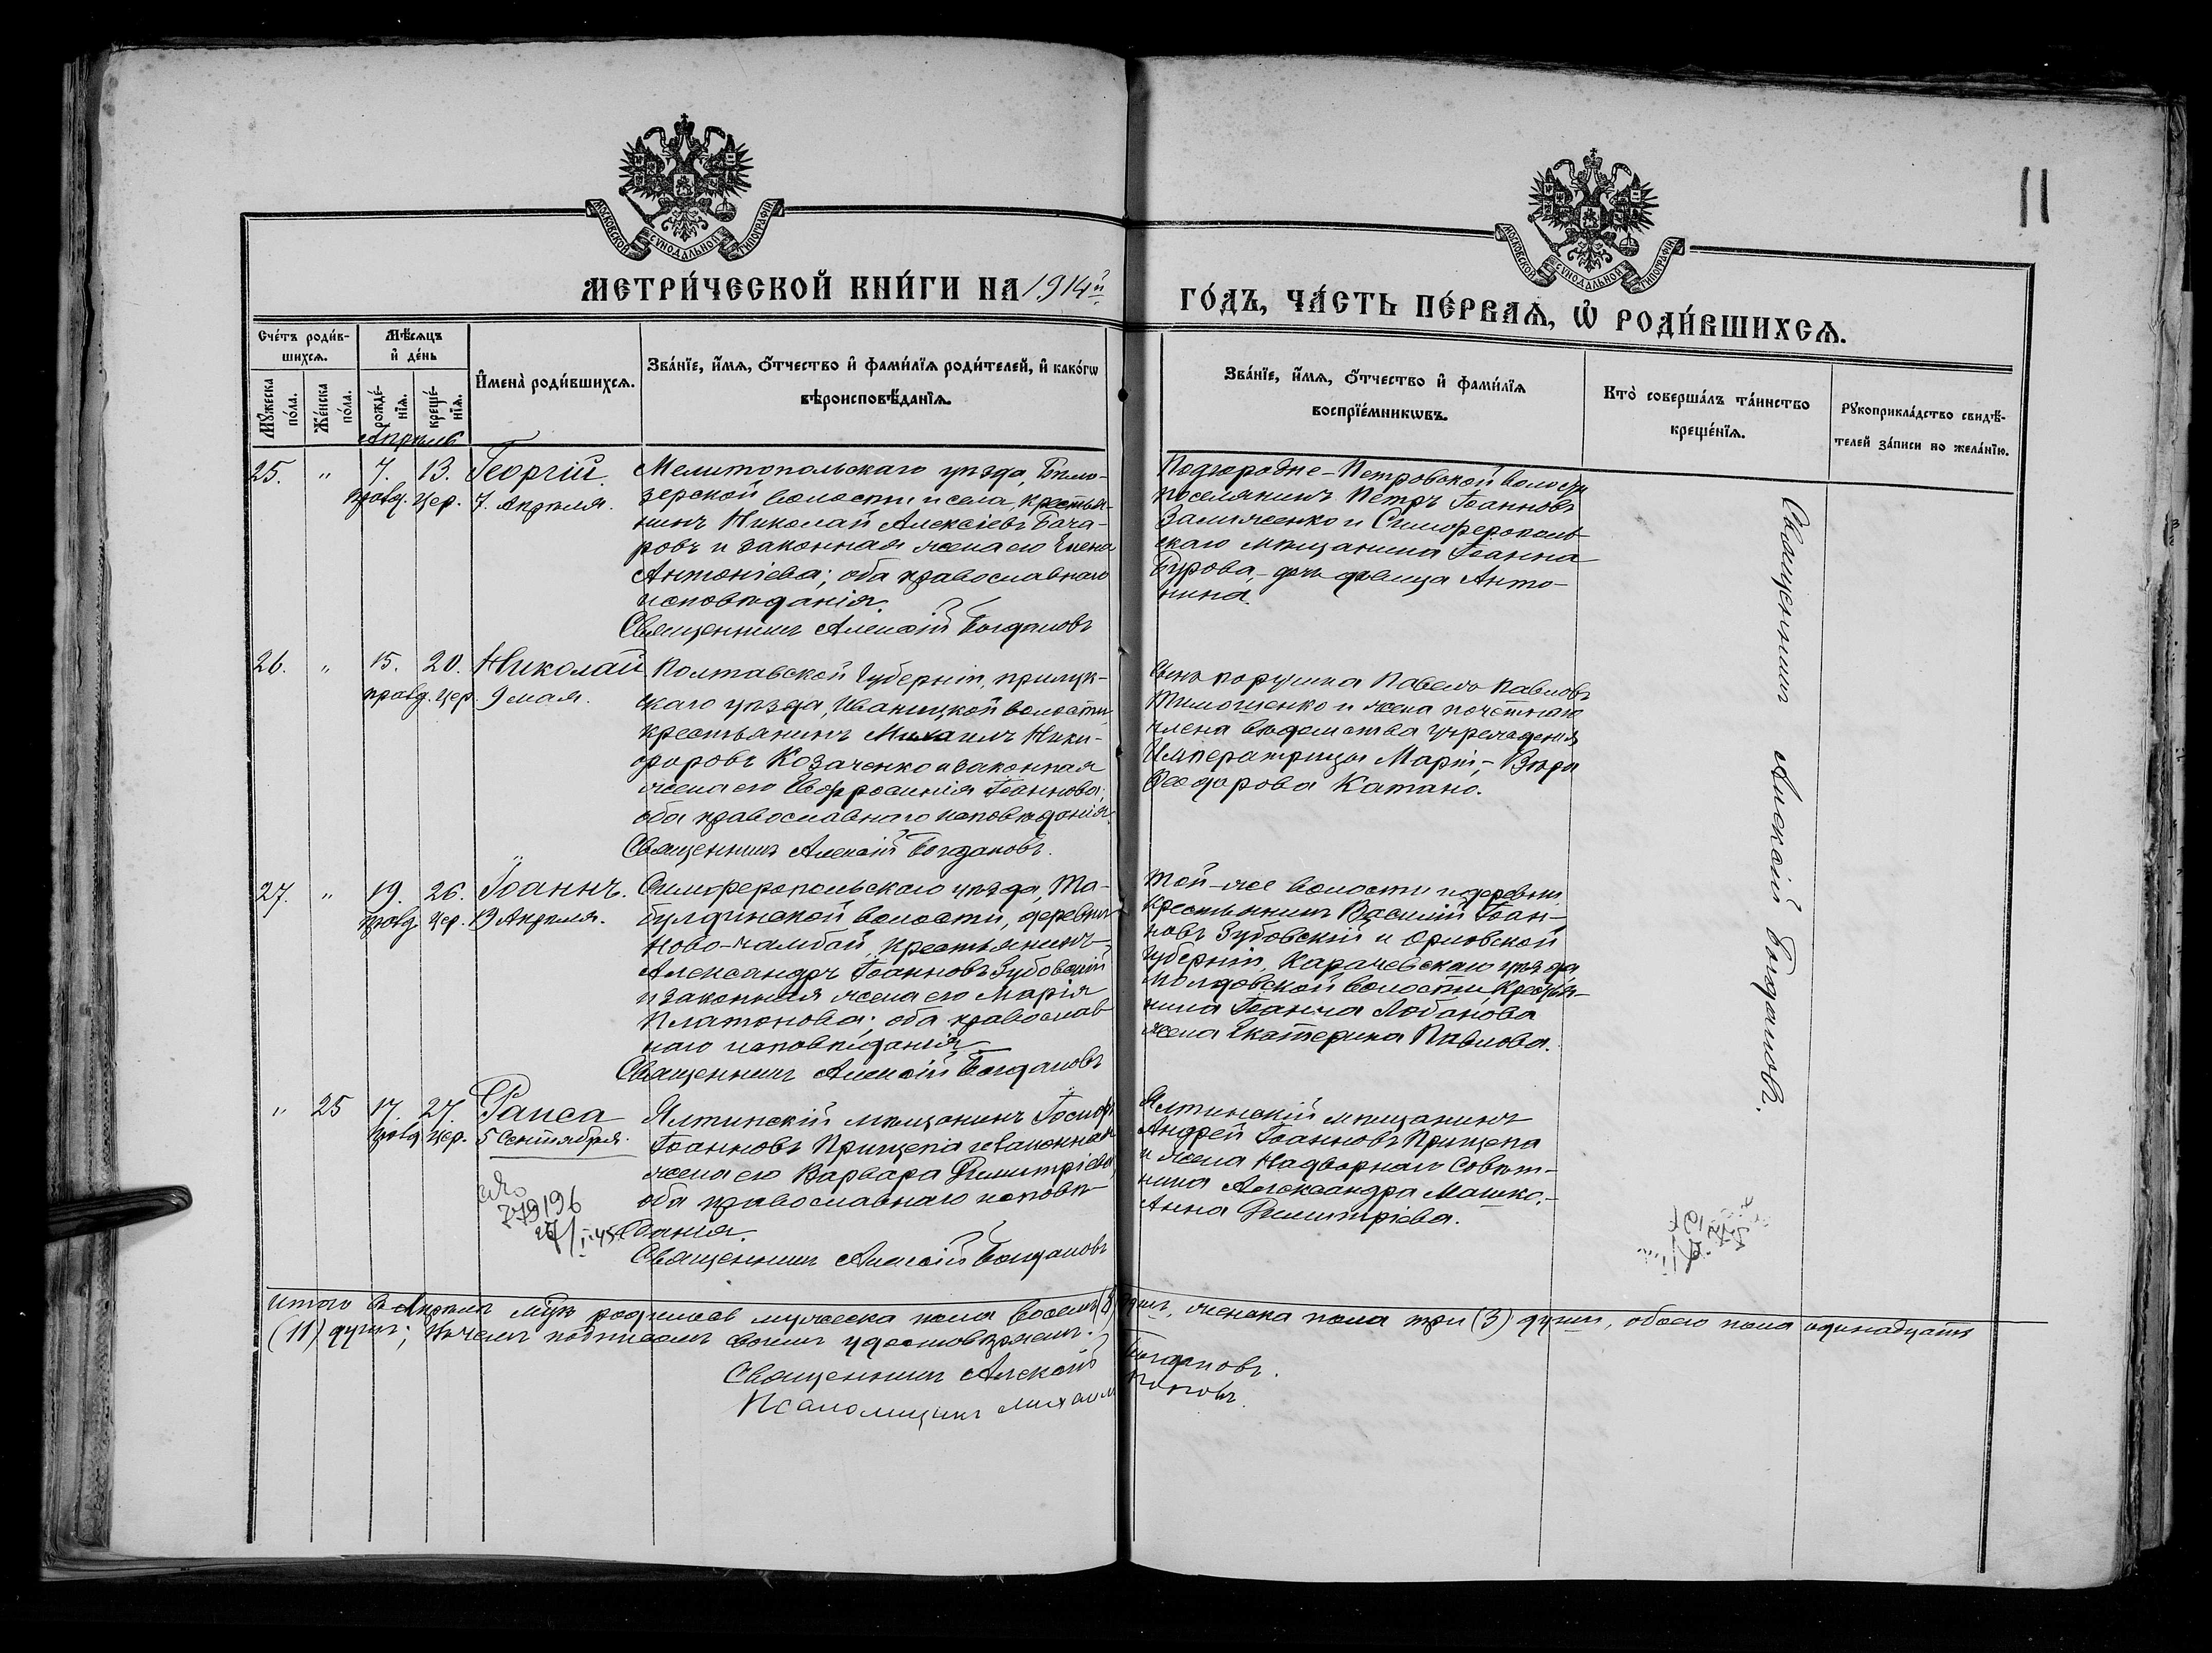 МОСКОВСКОЙ СѴНОДАЛЬНОЙ ТИПОГРАФІИ
МОСКОВСКОЙ СѴНОДАЛЬНОЙ ТИПОГРАФІИ
11
МЕТРИ́ЧЕСКОЙ КНИ́ГИ НА 1914й
ГО́ДЪ, ЧА́СТЬ ПЕ́РВАѦ, Ѡ҆ РОДИ́ВШИХСѦ.
Сче́тъ роди́в-
шихсѧ.
Мꙋ́жеска
по́ла.
Же́нска
по́ла.
Мѣ́сѧцъ
и҆ де́нь
рожде́-
нїѧ.
креще́-
нїѧ.
И҆мена̀ роди́вшихсѧ.
Зва́нїе, и҆́мѧ, ѻ҆́тчество и҆ фами́лїѧ роди́телей, и҆ како́гѡ
вѣроисповѣ́данїѧ.
Зва́нїе, и҆́мѧ, ѻ҆́тчество и҆ фами́лїѧ
воспрїе́мникѡвъ.
Кто̀ соверша́лъ та́инство
креще́нїѧ.
Рꙋкоприкла́дство свидѣ́-
телей за́писи по жела́нїю.
Апрѣль
25. " 7. 13. Георгій.
правд. цер. 7. Апрѣля.
Мелитопольскаго уѣзда, Бѣло-
зерской волости и села, крестья-
нинъ Николай Алексіевъ Бача-
ровъ и законная жена его Елена
Антоніева; оба православнаго
исповѣданія.
Священникъ Алексій Богдановъ
Подгородне-Петровской волости
поселянинъ Петръ Іоанновъ
и Симферополь-
скаго мѣщанина Іоанна
Бурова,- дочь дѣвица Анто-
нина.
26. " 15. 20. Николай
правд. цер. 9 мая.
Полтавской губерніи, прилук-
скаго уѣзда, Иваницкой волости
крестьянинъ Михаилъ Ники-
форовъ Козаченко и законная
жена его Евфросинія Іоаннова;
оба православнаго исповѣданія.
Священникъ Алексій Богдановъ.
Сынъ поручика Павелъ Павловъ
Тимошенко и жена почётнаго
члена вѣдомства учрежденія
Императрицы Маріи,- Вѣра
Феодорова Катано.
27. " 19. 26. Іоаннъ.
правд. цер. 19 Апрѣля.
Симферопольскаго уѣзда, Та-
булдинской волости, деревни
Ново-чамбай, крестьянинъ
Александръ Іоанновъ Зубовскій
и законная жена его Марія
Платонова; оба православ-
наго исповѣданія
Священникъ Алексій Богдановъ
Той-же волости и деревни
крестьянинъ Василій Іоан-
новъ Зубовскій и Орловской
губерніи, Карачевскаго уѣзда
Молдовской волости, крестья-
нина Іоанна Лобанова
жена Екатерина Павлова.
" 25 17. 27. Раиса
правд. цер. 5 Сентября.
779196
27/I-45
Ялтинскій мѣщанинъ Іосифъ
Іоанновъ Прищепа и законная
жена его Варвара Димитріева;
оба православнаго исповѣ-
данія.
Священникъ Алексій Богдановъ
Ялтинскій мѣщанинъ
Андрей Іоанновъ Прищепа
и жена Надворнаго Совѣт-
ника Александра Машко,-
Анна Димитріева.
Священникъ Алексій Богдановъ.
Итого въ Апрѣлѣ мцѣ родилось мужеска пола восемь (8) душъ, женска пола три (3) души, обоего пола одинадцать
(11) душъ; въ чемъ подписомъ своимъ удостовѣряемъ.
Священникъ Алексій Богдановъ.
Псаломщикъ Михаилъ Поповъ.